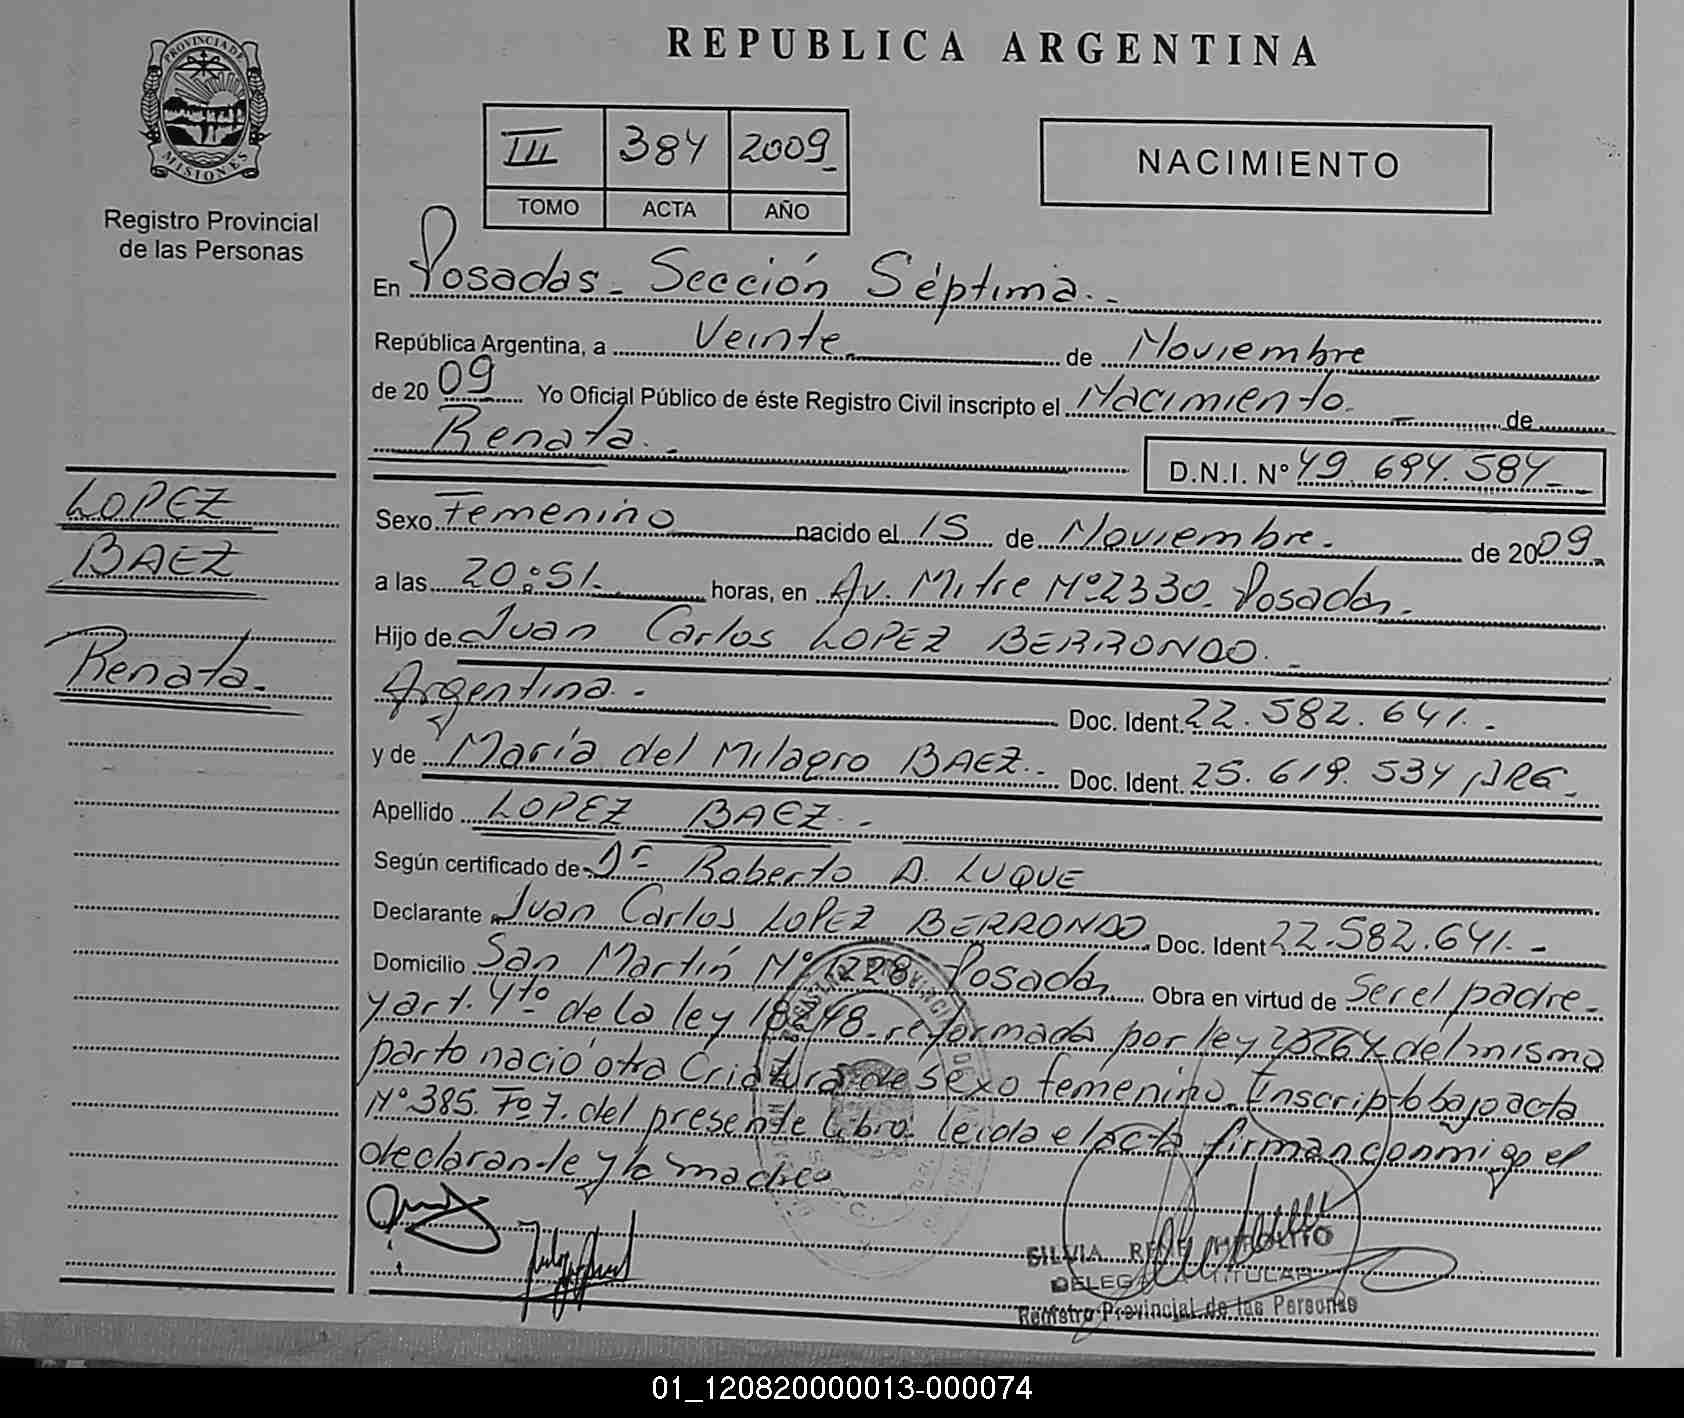 REPUBLICA ARGENTINA
PROVINCIA DE MISIONES
Registro Provincial
de las Personas
III 384 2009
TOMO ACTA AÑO
NACIMIENTO
En Posadas - Sección Séptima.-
República Argentina, a Veinte de Noviembre
de 2009 Yo Oficial Público de éste Registro Civil inscripto el Nacimiento. - de
Renata. - D.N.I. Nº 49.694.584-
LOPEZ
BAEZ
Renata.
Sexo Femenino nacido el 15 de Noviembre. de 2009.
a las 20:51. horas, en Av. Mitre Nº 2330. Posadas.
Hijo de Juan Carlos LOPEZ BERRONDO. -
Argentina. - Doc. Ident. 22.582.641. -
y de María del Milagro BAEZ.- Doc. Ident. 25.619.534 ARG.
Apellido LOPEZ BAEZ. -
Según certificado de Dr Roberto A. LUQUE
Declarante Juan Carlos LOPEZ BERRONDO Doc. Ident 22.582.641. -
Domicilio San Martín Nº 1228 Posadas Obra en virtud de Ser el padre-
y art. 4to de la ley 18248- reformada por ley 23264 del mismo
parto nació otra Criatura de sexo femenino. Inscripto bajo acta
Nº 385. Fº 7. del presente libro. leida el acta firman conmigo el
declarante y la madre
SILVIA RENE HIPOLITO
DELEGADA TITULAR
Registro Provincial de las Personas
01_120820000013-000074